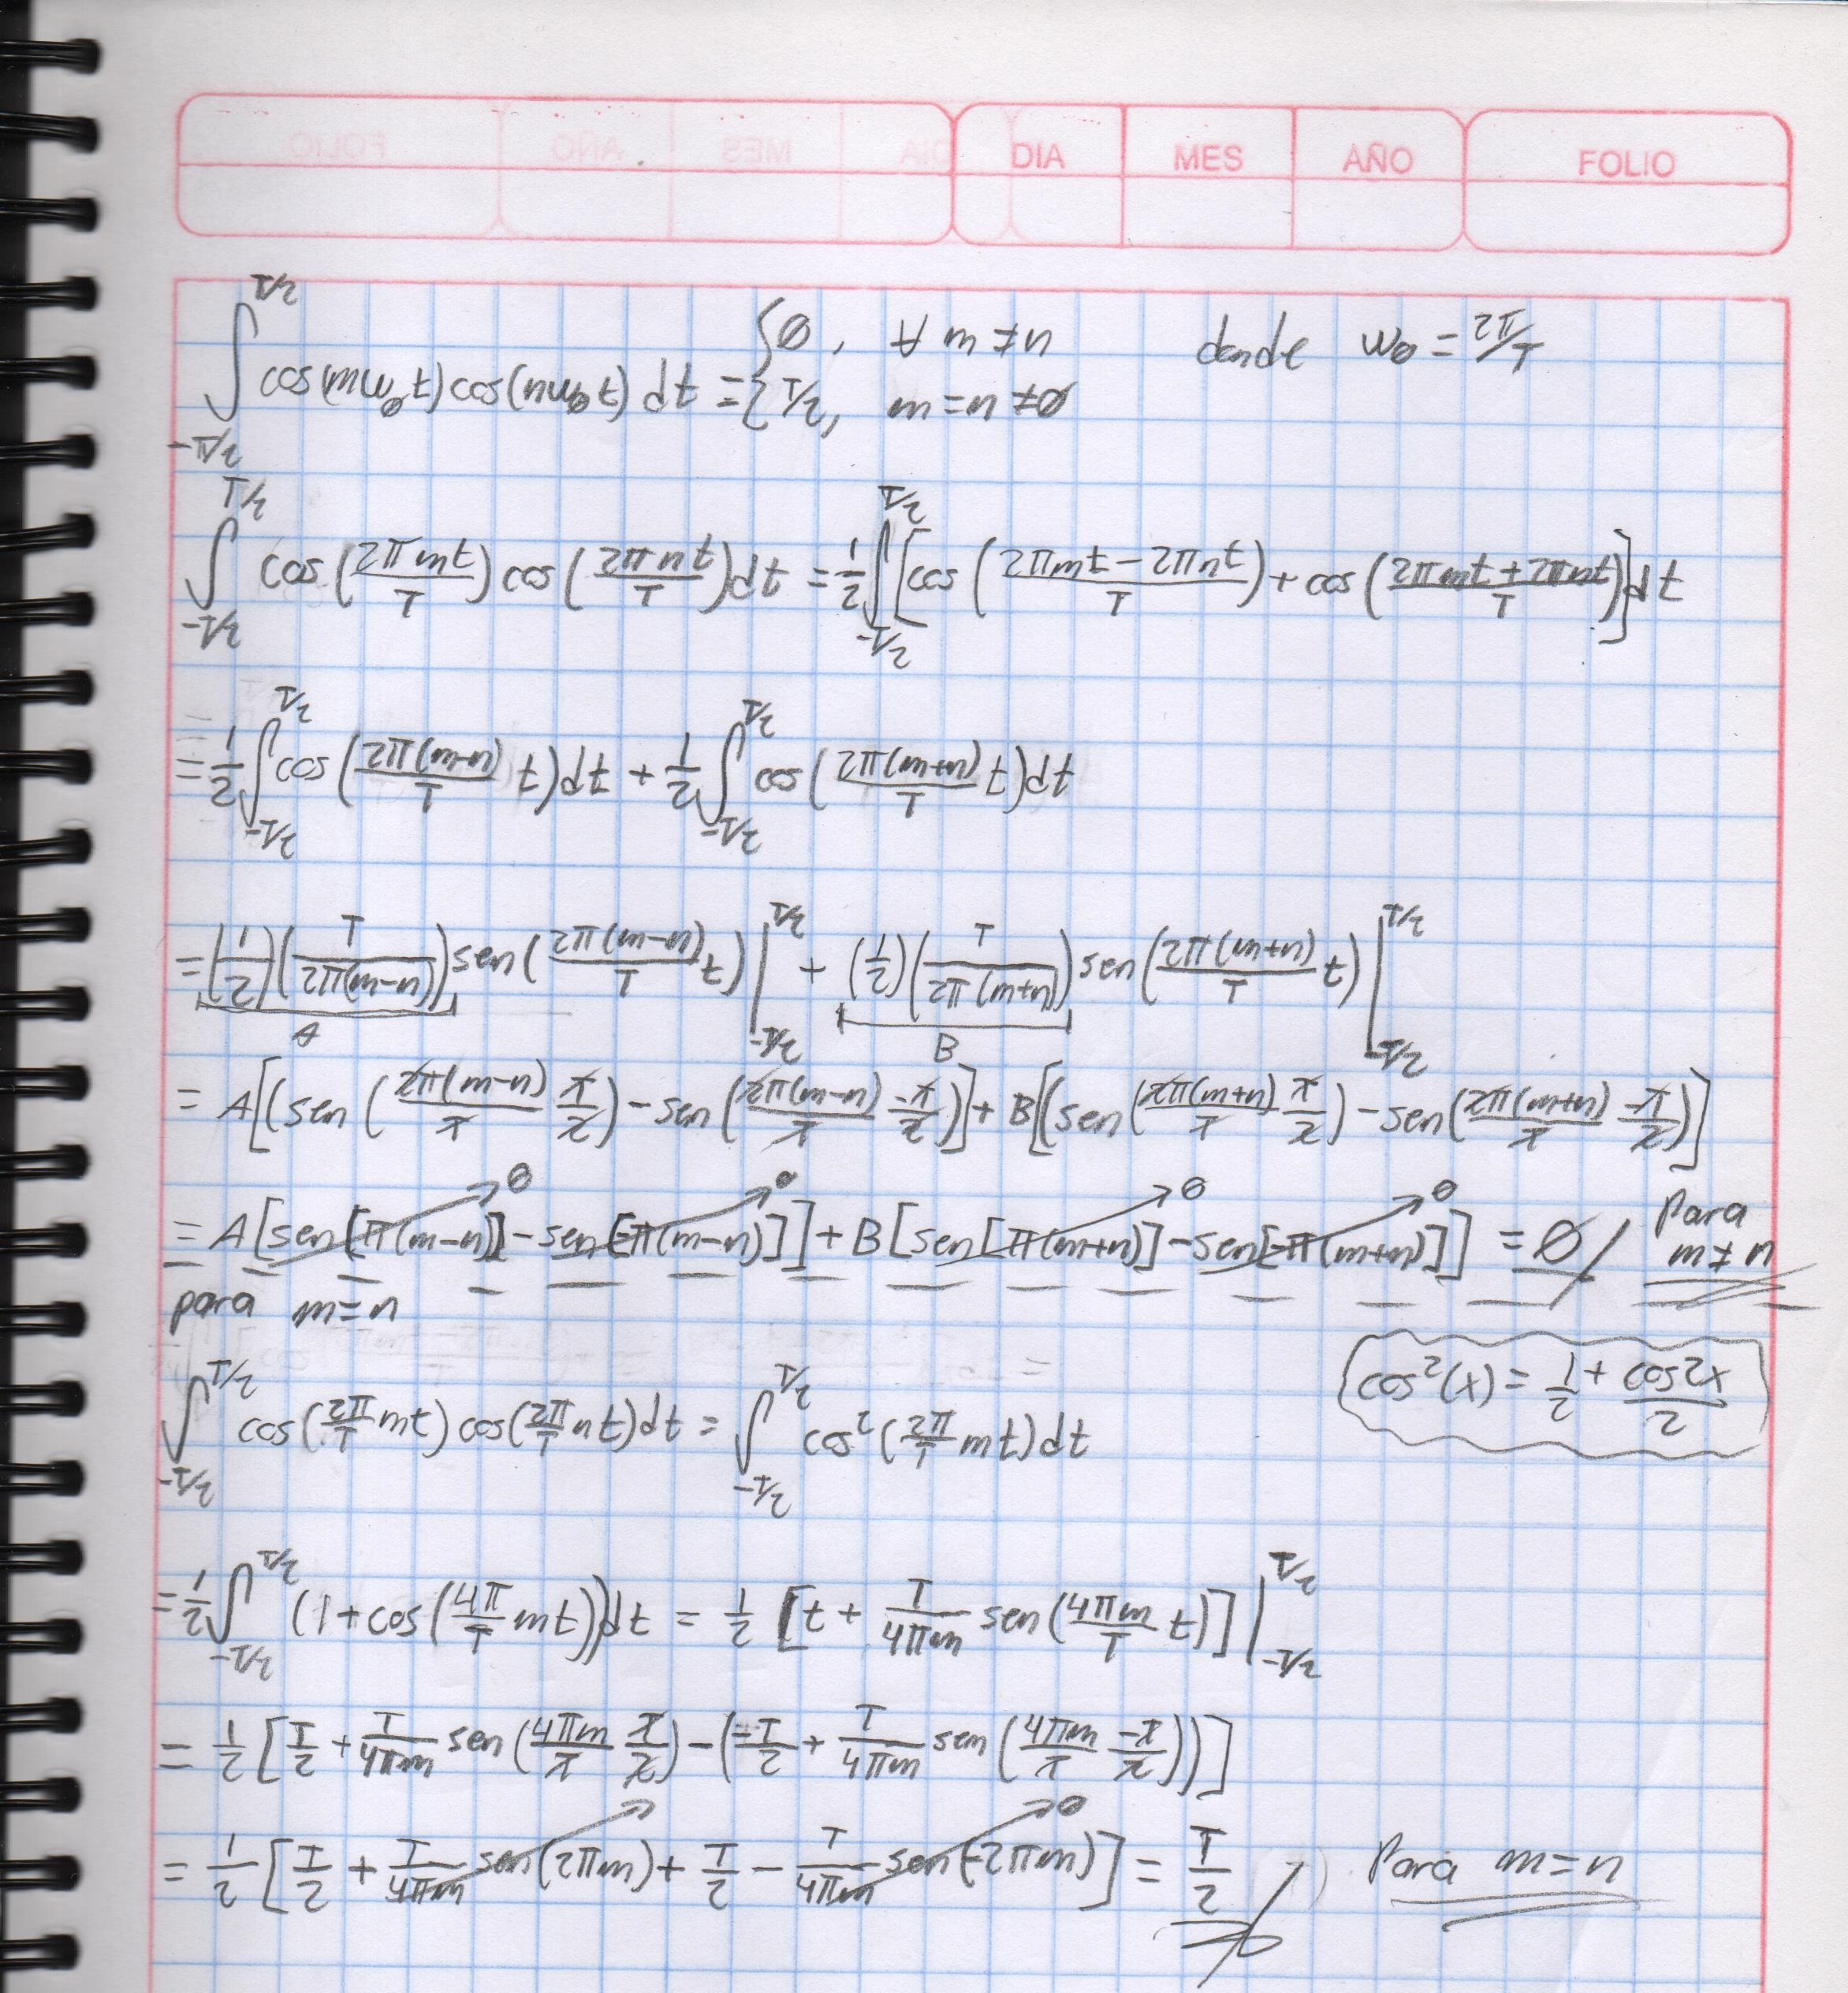 DIA MES AÑO FOLIO
∫_{-T/2}^{T/2} cos(mω₀t) cos(nω₀t) dt = { 0, ∀ m ≠ n donde ω₀ = 2π/T
{ T/2, m = n ≠ 0
∫_{-T/2}^{T/2} cos(2πmt/T) cos(2πnt/T) dt = 1/2 ∫_{-T/2}^{T/2} [cos((2πmt - 2πnt)/T) + cos((2πmt + 2πnt)/T)] dt
= 1/2 ∫_{-T/2}^{T/2} cos(2π(m-n)/T t) dt + 1/2 ∫_{-T/2}^{T/2} cos(2π(m+n)/T t) dt
= (1/2)(T/2π(m-n)) sen(2π(m-n)/T t) |_{-T/2}^{T/2} + (1/2)(T/2π(m+n)) sen(2π(m+n)/T t) |_{-T/2}^{T/2}
A B
= A[(sen(2π(m-n)/T T/2) - sen(2π(m-n)/T -T/2)] + B[(sen(2π(m+n)/T T/2) - sen(2π(m+n)/T -T/2)]
0 0 0 0
= A[sen[π(m-n)] - sen[-π(m-n)]] + B[sen[π(m+n)] - sen[-π(m+n)]] = 0 Para m ≠ n
para m = n
cos²(x) = 1/2 + cos2x/2
∫_{-T/2}^{T/2} cos(2π/T mt) cos(2π/T nt) dt = ∫_{-T/2}^{T/2} cos²(2π/T mt) dt
= 1/2 ∫_{-T/2}^{T/2} (1 + cos(4π/T mt)) dt = 1/2 [t + T/4πm sen(4πm/T t)] |_{-T/2}^{T/2}
= 1/2 [T/2 + T/4πm sen(4πm/T T/2) - (-T/2 + T/4πm sen(4πm/T -T/2))]
0 0
= 1/2 [T/2 + T/4πm sen(2πm) + T/2 - T/4πm sen(-2πm)] = T/2 Para m = n